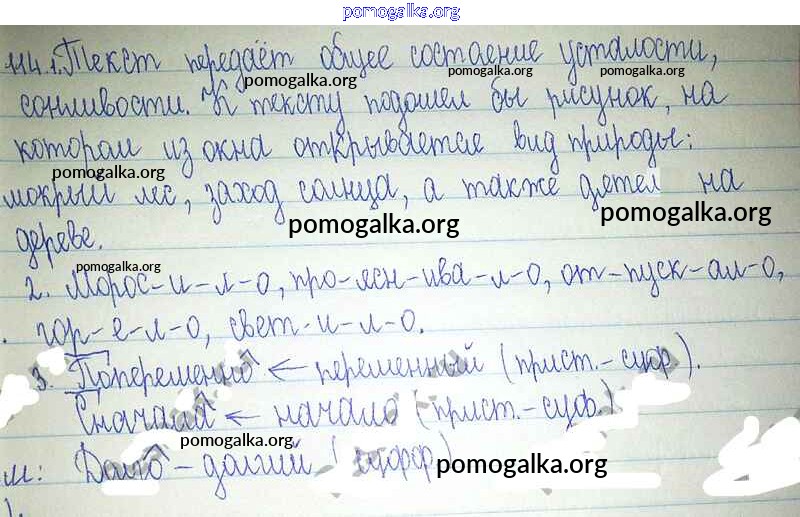 pomogalka.org
114.1. Текст передаёт общее состаение усталости,
pomogalka.org pomogalka.org pomogalka.org
сонливости. К тексту подошел бы рисунок, на
котором из окна открывается вид природы:
pomogalka.org
мокрый лес, заход солнца, а также дятел на
pomogalka.org pomogalka.org
дереве.
pomogalka.org
2. Морос-и-л-о, про-ясн-ива-л-о, от-пуск-ал-о,
гор-е-л-о, свет-и-л-о.
3. Попеременно ← переменный (прист.-суф).
Сначала ← начало (прист.-суф.)
pomogalka.org
Долго - долгий (суфф) pomogalka.org